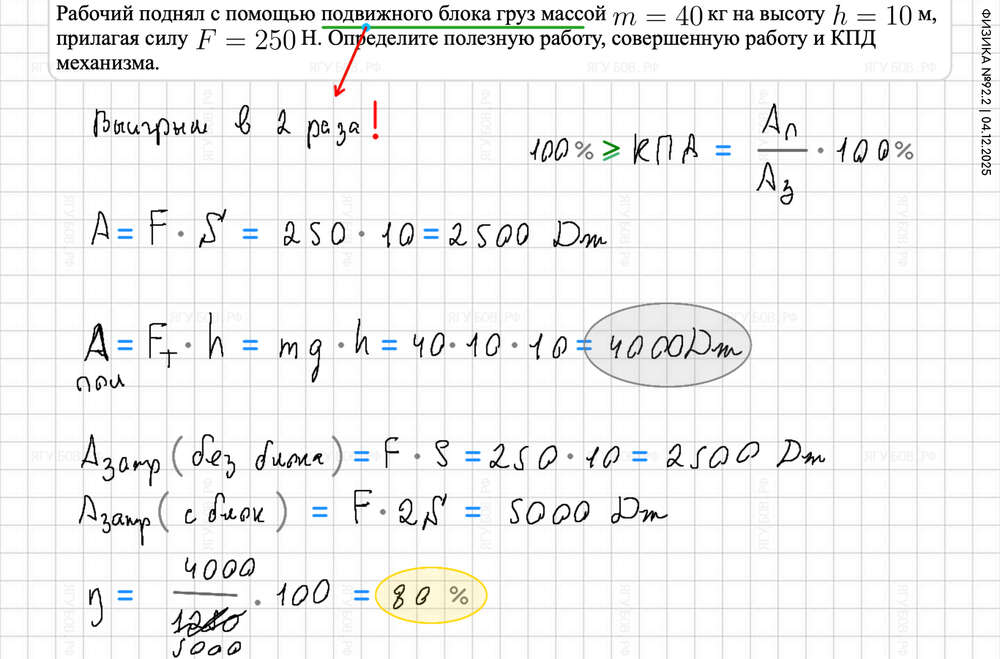 Рабочий поднял с помощью подвижного блока груз массой m = 40 кг на высоту h = 10 м,
прилагая силу F = 250 Н. Определите полезную работу, совершенную работу и КПД
механизма.
ФИЗИКА №92.2 | 04.12.2025
Выигрыш в 2 раза!
100% ≥ КПД = Aп / Aз · 100%
A = F · S = 250 · 10 = 2500 Дж
A пол = Fт · h = mg · h = 40 · 10 · 10 = 4000 Дж
Aзатр (без блока) = F · S = 250 · 10 = 2500 Дж
Aзатр (с блок) = F · 2S = 5000 Дж
η = 4000 / 5000 · 100 = 80 %
ЯГУБОВ.РФ